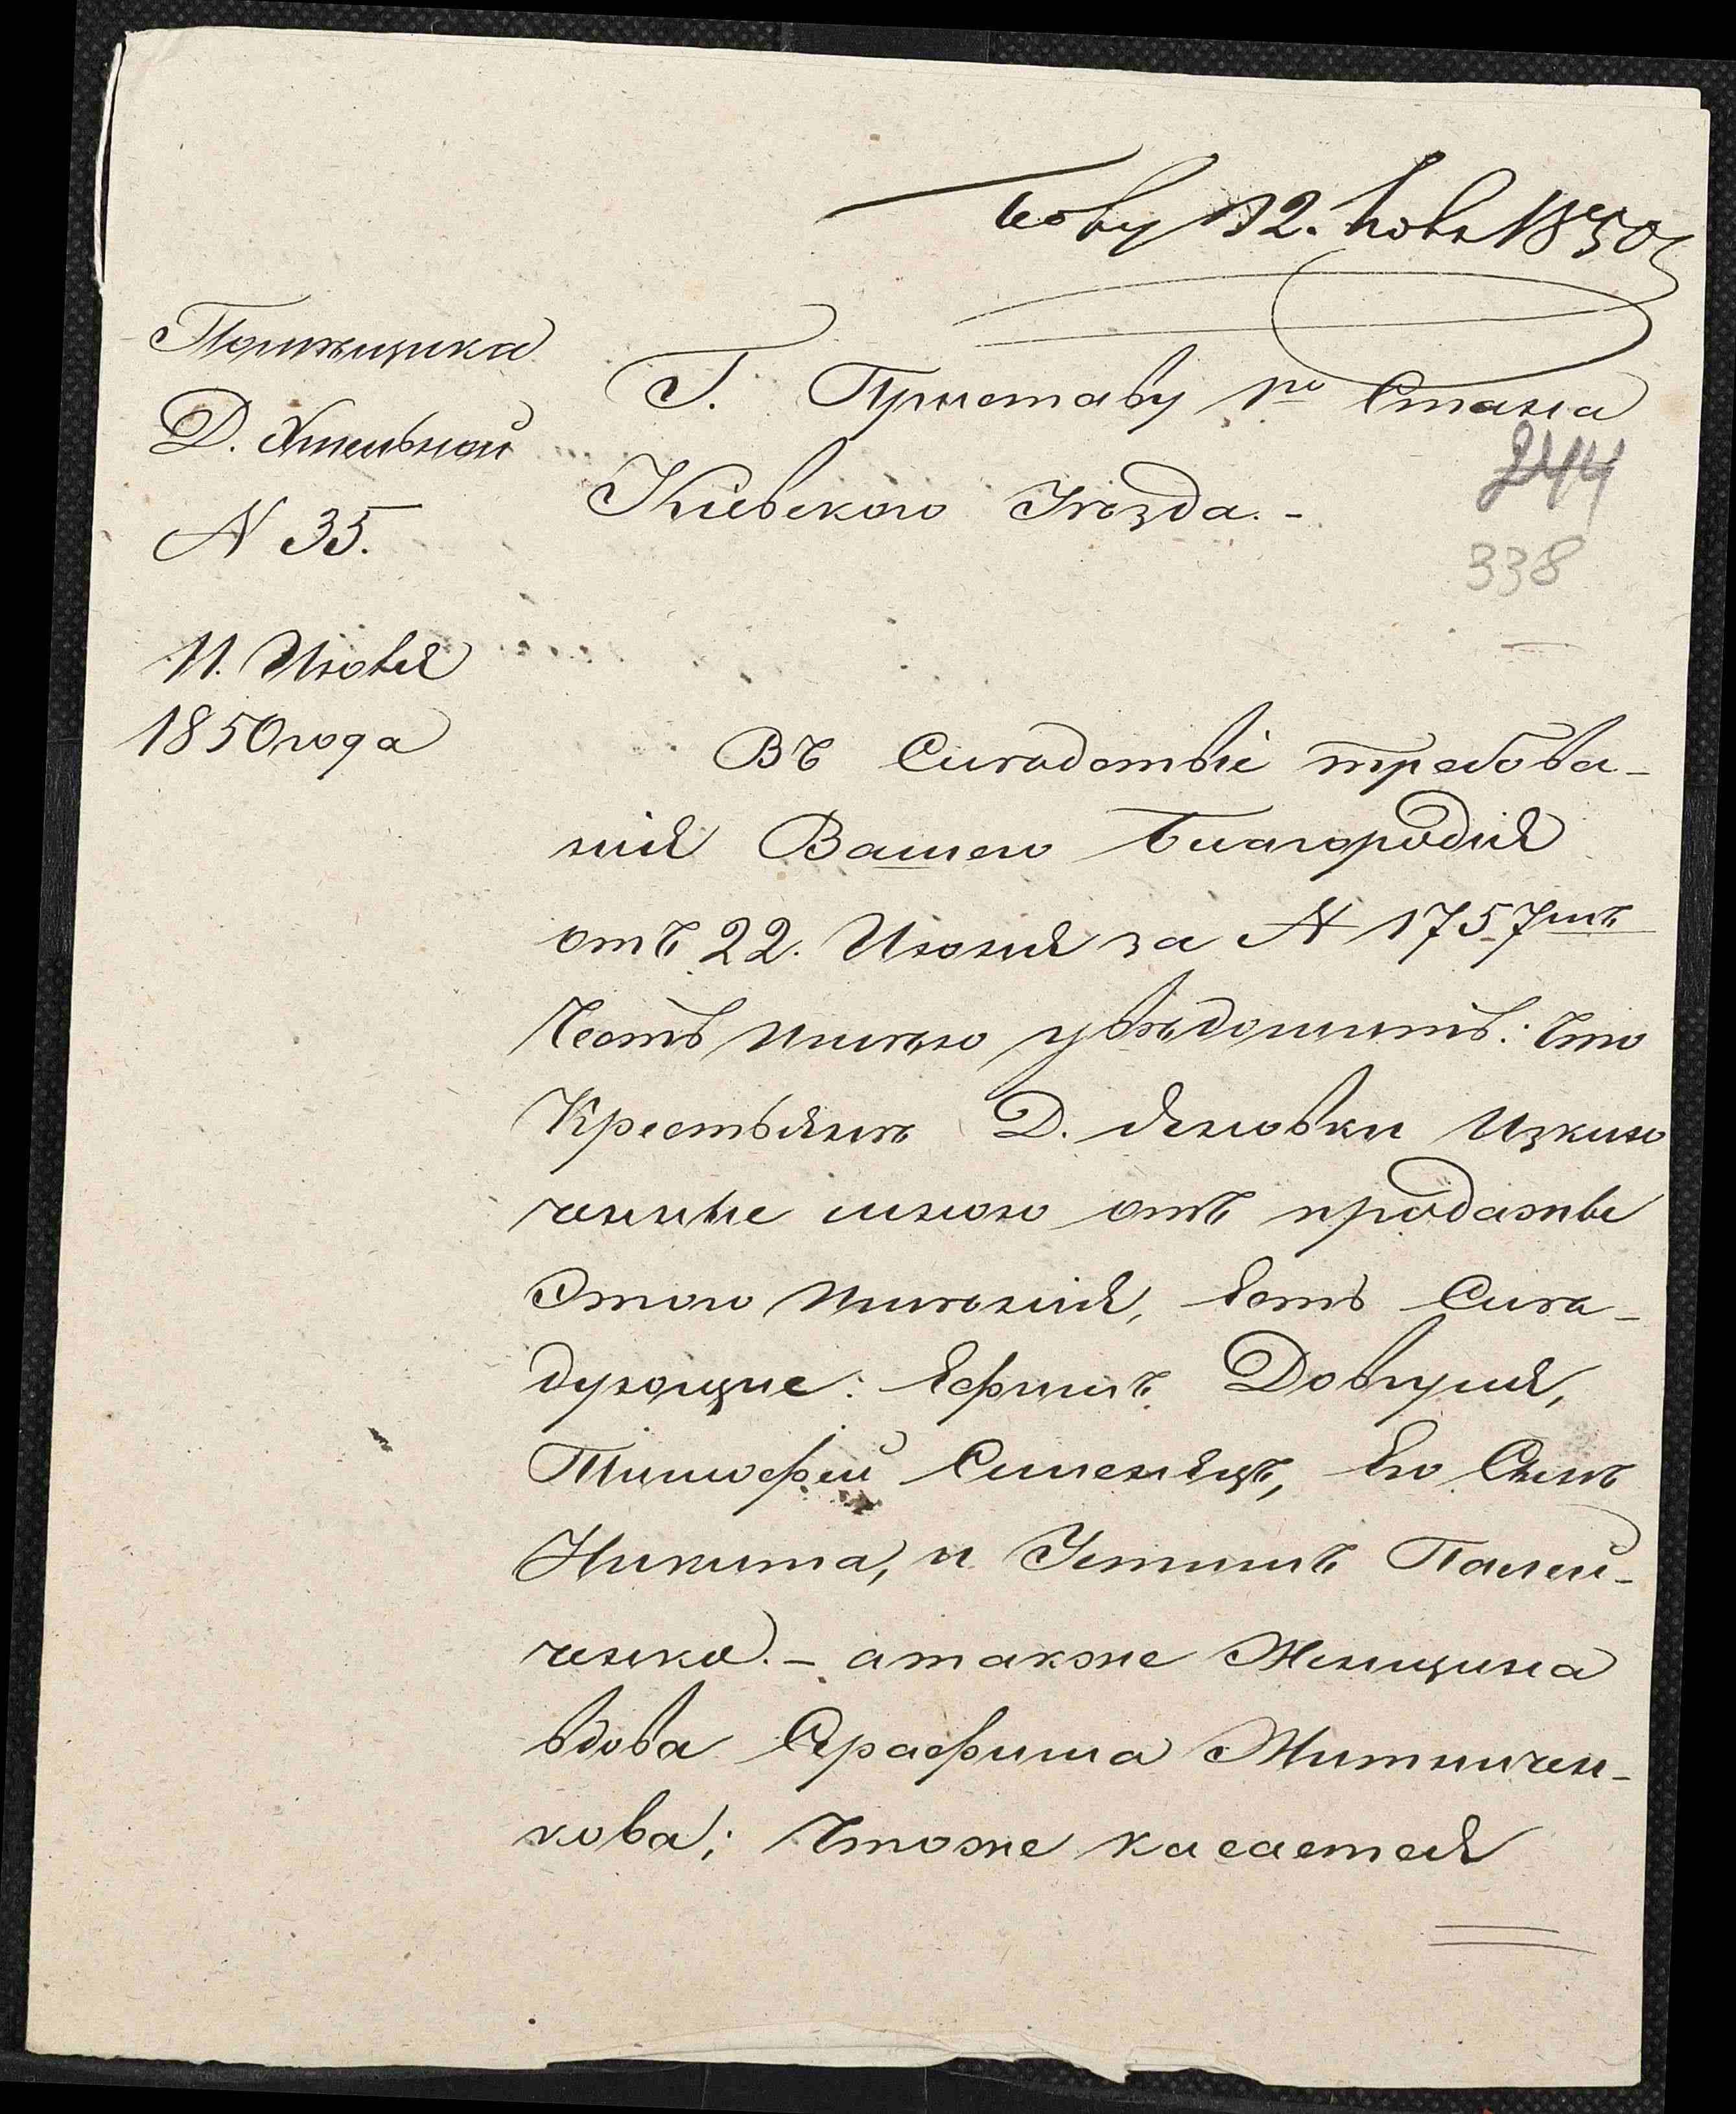 12. 1850
Помѣщика
Д. Хмельной
N 35.
11. Июля
1850 года
Г. Приставу 1го Стана
Кіевского Уѣзда. -
244
338
Въ Слѣдствіе требова-
нія Вашего Благородія
отъ 22. Июня за N 1757мъ
Честь имѣю увѣдомить: Что
Крестьянѣ Д. Яновки Изклю
ченные мною отъ продажы
Этого Имѣнія, Есть Слѣ-
дующие: Ефимъ Довгуля,
Тимофей Сименяцъ, Его Сынъ
Никита, и Устимъ Палей-
ченко. - атакже Женщина
вдова Серафима Житничен-
кова; Чтоже касается